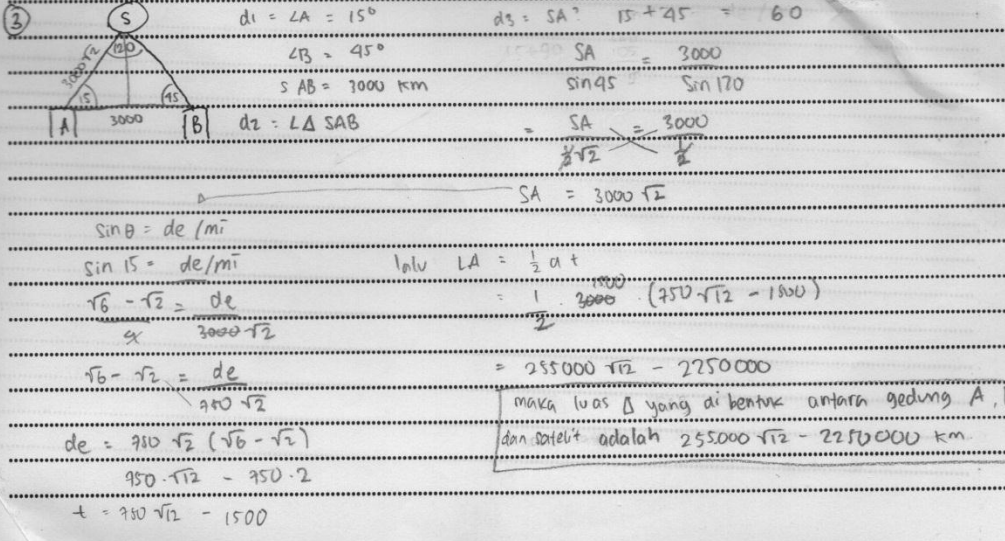 3
S
120
3000√2
15
45
A
3000
B
d1 = ∠A = 15°
∠B = 45°
S AB = 3000 km
d2 : L∆ SAB
d3 = SA? 15 + 45 = 60
SA / sin 45 = 3000 / Sin 120
= SA / ½√2 = 3000 / ½
SA = 3000 √2
sin θ = de / mi
sin 15 = de/mi
√6 - √2 / 4 = de / 3000 √2
√6 - √2 = de / 750 √2
de = 750 √2 (√6 - √2)
750 . √12 - 750 . 2
t = 750 √12 - 1500
lalu LA = ½ a t
= 1/2 . 3000 1500 . (750 √12 - 1500)
= 255000 √12 - 2250000
maka luas ∆ yang di bentuk antara gedung A,
dan satelit adalah 255.000 √12 - 2250000 km